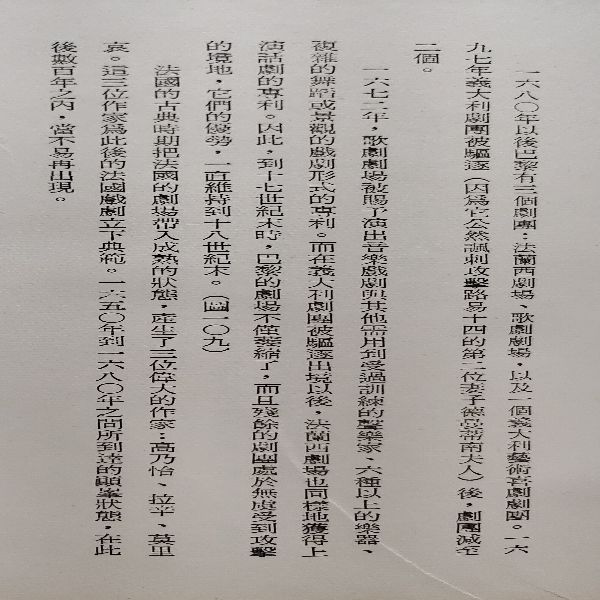 一六八〇年以後巴黎有三個劇團：法蘭西劇場、歌劇劇場，以及一個義大利藝術喜劇劇團。一六
九七年義大利劇團被驅逐（因爲它公然諷刺攻擊路易十四的第二位妻子德曼蒂南夫人）後，劇團減至
二個。
一六七二年，歌劇劇場被賜予演出音樂戲劇與其他需用到受過訓練的聲樂家、六種以上的樂器、
複雜的舞蹈或景觀的戲劇形式的專利。而在義大利劇團被驅逐出境以後，法蘭西劇場也同樣地獲得上
演話劇的專利。因此，到十七世紀末時，巴黎的劇場不僅萎縮了，而且殘餘的劇團處於無處受到攻擊
的境地，它們的優勢，一直維持到十八世紀末。（圖一〇九）
法國的古典時期把法國的劇場帶入成熟的狀態，産生了三位偉大的作家：高乃怡、拉辛、莫里
哀。這三位作家爲此後的法國戲劇立下典範。一六五〇年到一六八〇年之間所到達的顛峯狀態，在此
後數百年之內，當不易再出現。